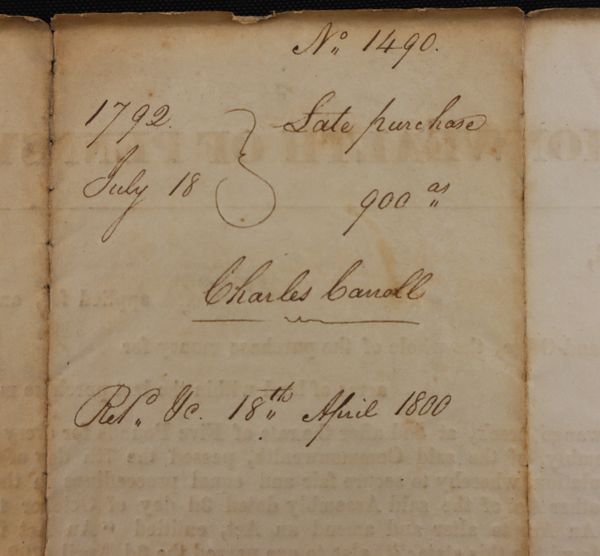 No 1490.
1792. Late purchase
July 18 900 as
Charles Carroll
Retd. &c. 18th April 1800